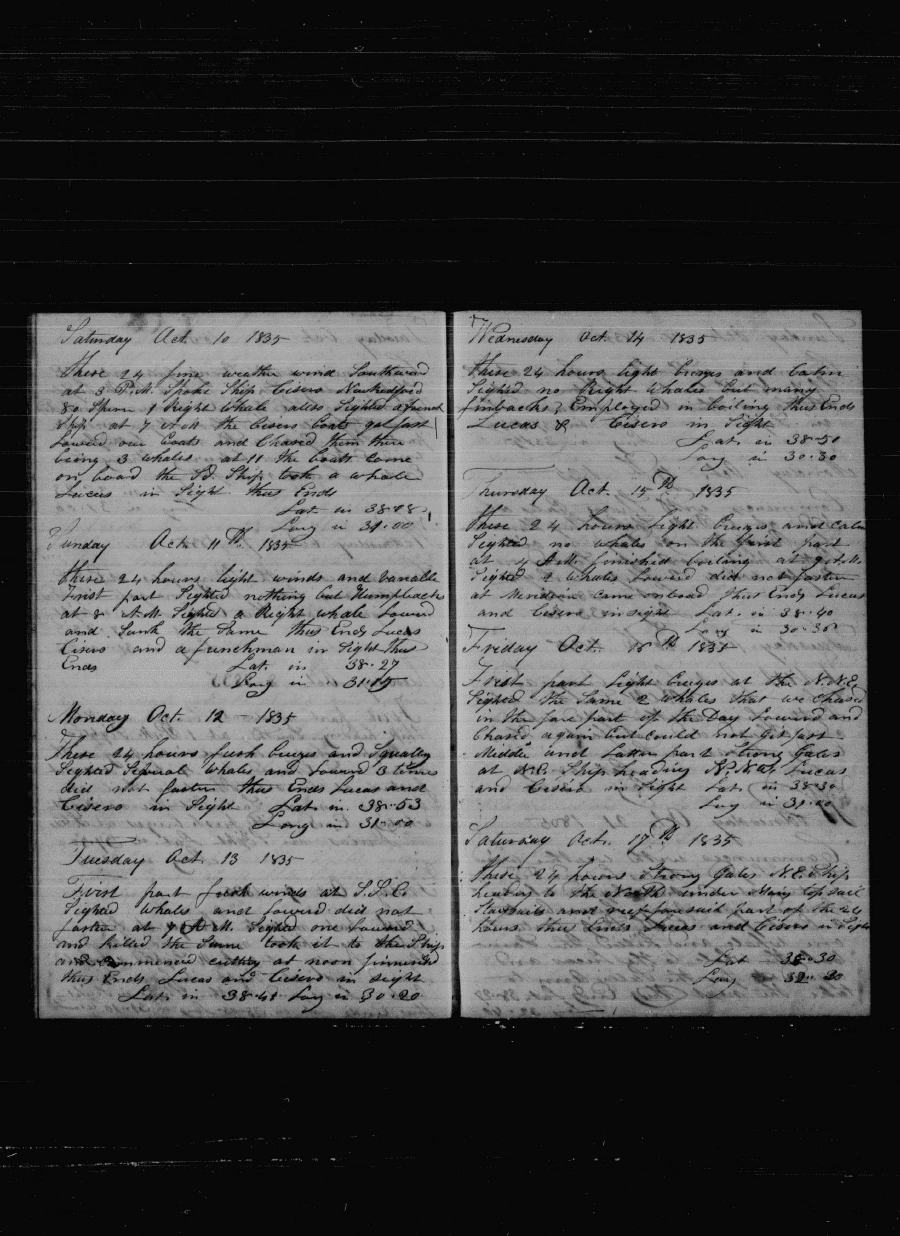 Saturday Oct. 10 1835
These 24 fine weather wind Southward
at 3 P.M. Spoke Ship Cisero Newbedford
80 Sperm 1 Right whale allso Sighted a french
Ship at 7 A.M the Ciseros boats got fast
Lowerd our boats and Chased them there
being 3 whales at 11 the boats come
on board the Sd. Ship took a whale
Lucas in Sight thus Ends
Lat in 38.18
Long in 31.00
Sunday Oct. 11th 1835
these 24 hours light winds and variable
First part Sighted nothing but Humpbacks
at 8 A.M. Sighted a Right whale Lowerd
and Sunk the Same thus Ends Lucas
Cisero and a frenchman in Sight thus
Ends Lat. in 38.27
Long in 31.15
Monday Oct. 12 - 1835
These 24 hours fresh breezes and Squaley
Sighted Several whales and Lowerd 3 times
did not fasten thus Ends Lucas and
Cisero in Sight Lat. in 38.53
Long in 31.00
Tuesday Oct. 13 1835
First part fresh winds at S.S.E.
Sighted whales and Lowerd did not
fasten at 7 A.M. Sighted one Lowerd
and killed the Same took it to the Ship
and Commenced cutting at noon finnished
thus Ends Lucas and Cisero in sight
Lat. in 38.45 Long in 30.20
Wednesday Oct. 14 1835
these 24 hours light breezes and Calm
Sighted no Right whales but many
finbacks & Employed in boiling thus Ends
Lucas & Cisero in Sight
Lat. in 38.50
Long in 30.30
Thursday Oct. 15th 1835
these 24 hours Light breezes and calm
Sighted no whales on the First part
at 4 A.M. finnished boiling at 9 A.M.
Sighted 2 whales Lowerd did not fasten
at Meridian came onboad thus Ends Lucas
and Cisero in sight Lat. in 38.40
Long in 30.30
Friday Oct. 16th 1835
First part Light breezes at the N.N.E.
Sighted the Same 2 whales that we Chased
in the fore part of the Day Lowerd and
Chased again but could not Git fast
Middle and Latter part Strong Gales
at N.E. Ship heading N.N.W. Lucas
and Cisero in sight Lat in 38.30
Long in 31.00
Saturday Oct. 17th 1835
These 24 hours Strong Gales N.E. Ship
heading to the North under Main topsail
Staysails and reef foresail part of the 24
hours thus Ends Lucas and Cisero in Sight
Lat 38.30
Long 32.20